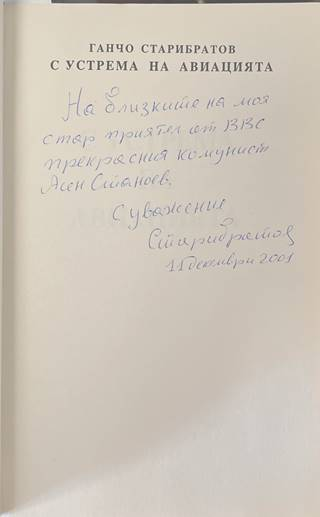 ГАНЧО СТАРИБРАТОВ
С УСТРЕМА НА АВИАЦИЯТА
На близките на моя
стар приятел от ВВС
прекрасния комунист
Асен Станоев.
С уважение
Старибратов
15 декември 2001